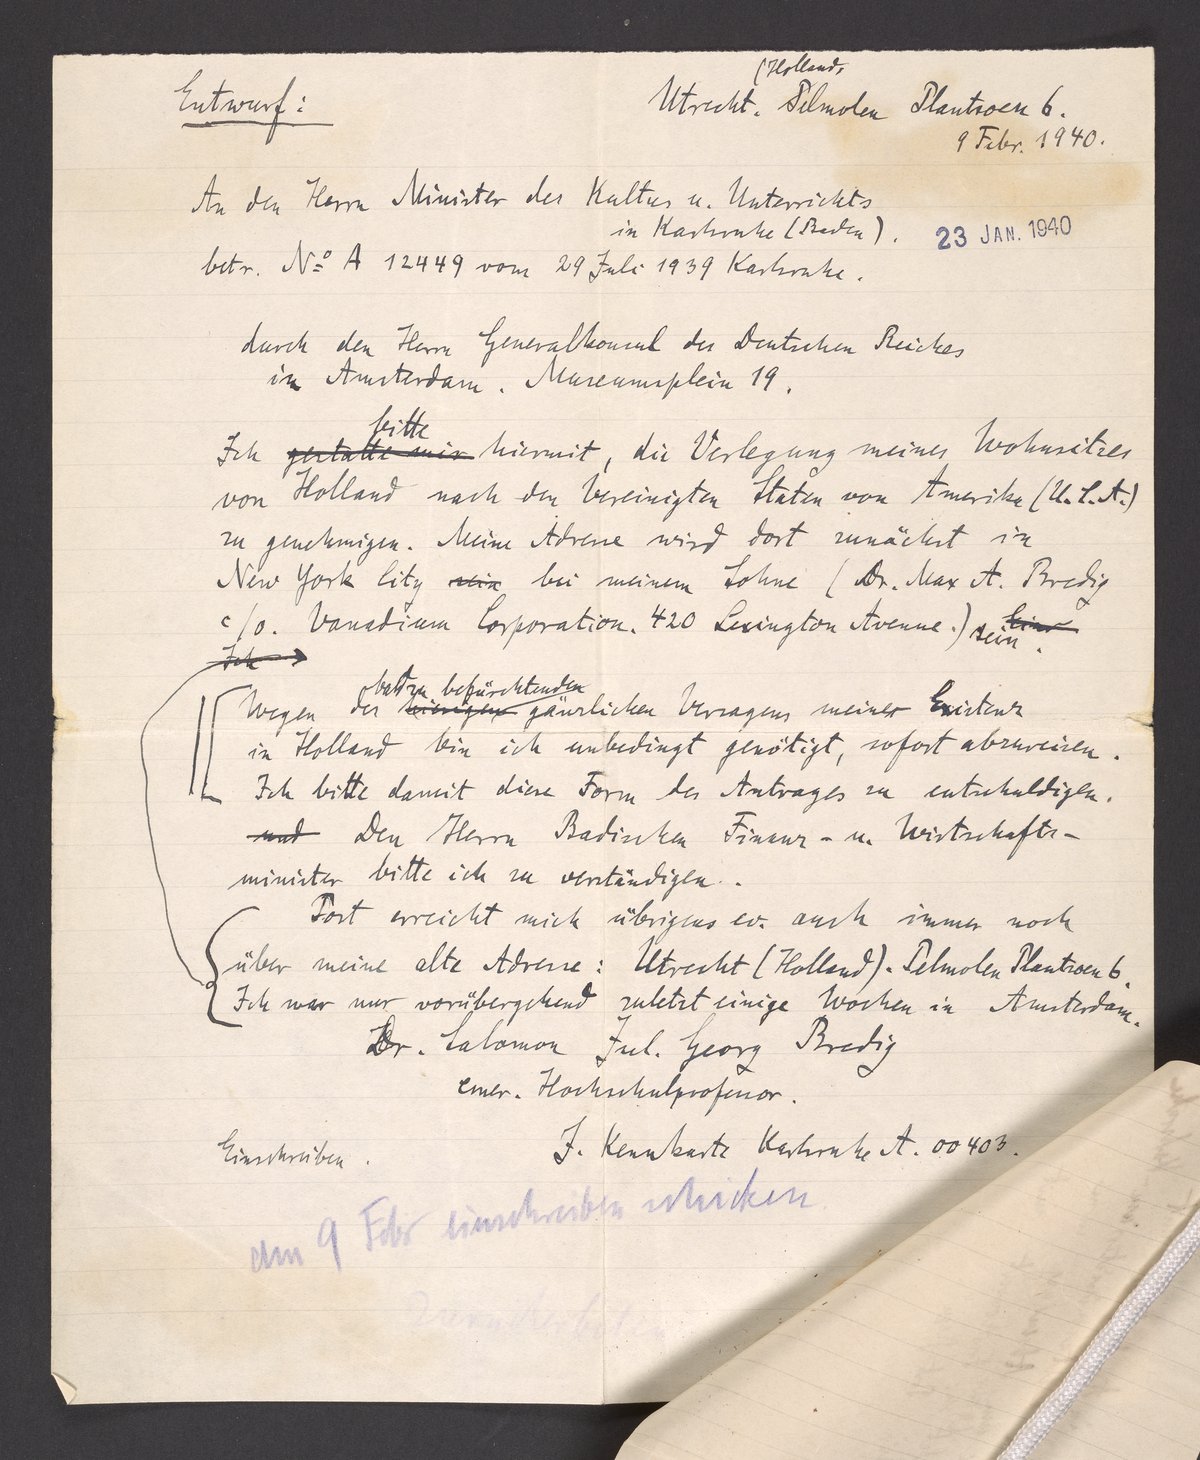 Entwurf:
(Holland)
Utrecht. Pelmolen Plantsoen 6.
9 Febr. 1940.
An den Herrn Minister des Kultus u. Unterrichts
in Karlsruhe (Baden).
23 JAN. 1940
betr. No A 12449 vom 29 Juli 1939 Karlsruhe.
durch den Herrn Generalkonsul des Deutschen Reiches
in Amsterdam. Museumsplein 19.
bitte
Ich gestatte mir hiermit, die Verlegung meines Wohnsitzes
von Holland nach den Vereinigten Staten von Amerika (U.S.A.)
zu genehmigen. Meine Adresse wird dort zunächst in
New York City sein bei meinem Sohne (Dr. Max A. Bredig
c/o. Vanadium Corporation. 420 Lexington Avenue.) sein.
Ich
bald zu befürchtenden
Wegen des gänzlichen Versagens meiner Existenz
in Holland bin ich unbedingt genötigt, sofort abzureisen.
Ich bitte damit diese Form des Antrages zu entschuldigen.
und Den Herrn Badischen Finanz- u. Wirtschafts-
minister bitte ich zu verständigen.
Post erreicht mich übrigens ev. auch immer noch
über meine alte Adresse: Utrecht (Holland). Pelmolen Plantsoen 6.
Ich war nur vorübergehend zuletzt einige Wochen in Amsterdam.
Dr. Salomon Jul. Georg Bredig
emer. Hochschulprofessor.
Einschreiben.
J. Kennkarte Karlsruhe A. 00403.
am 9 Febr einschreiben schicken